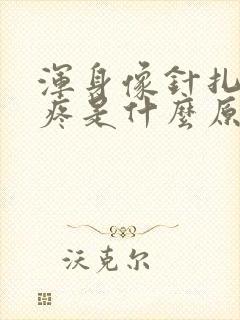 渾身像針扎
疼是什麼原
沃克尔